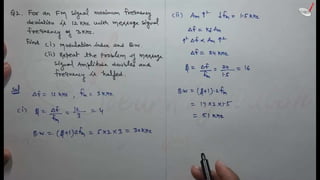 Q2. For an FM Signal maximum frequency
deviation is 12 kHz with message signal
frequency of 3 kHz.
Find (i) Modulation index and BW
(ii) Repeat the problem if message
Signal Amplitude doubles and
frequency is halfed.
Sol
Δf = 12 kHz, fm = 3 kHz
(i) β = Δf/fm = 12/3 = 4
BW = (β+1)2fm = 5×2×3 = 30 kHz
(ii) Am ↑2 ↓fm = 1.5 kHz
Δf = kf Am
↑2 Δf ∝ Am ↑2
Δf = 24 kHz
β = Δf/fm = 24/1.5 = 16
BW = (β+1)2fm
= 17×2×1.5
= 51 kHz